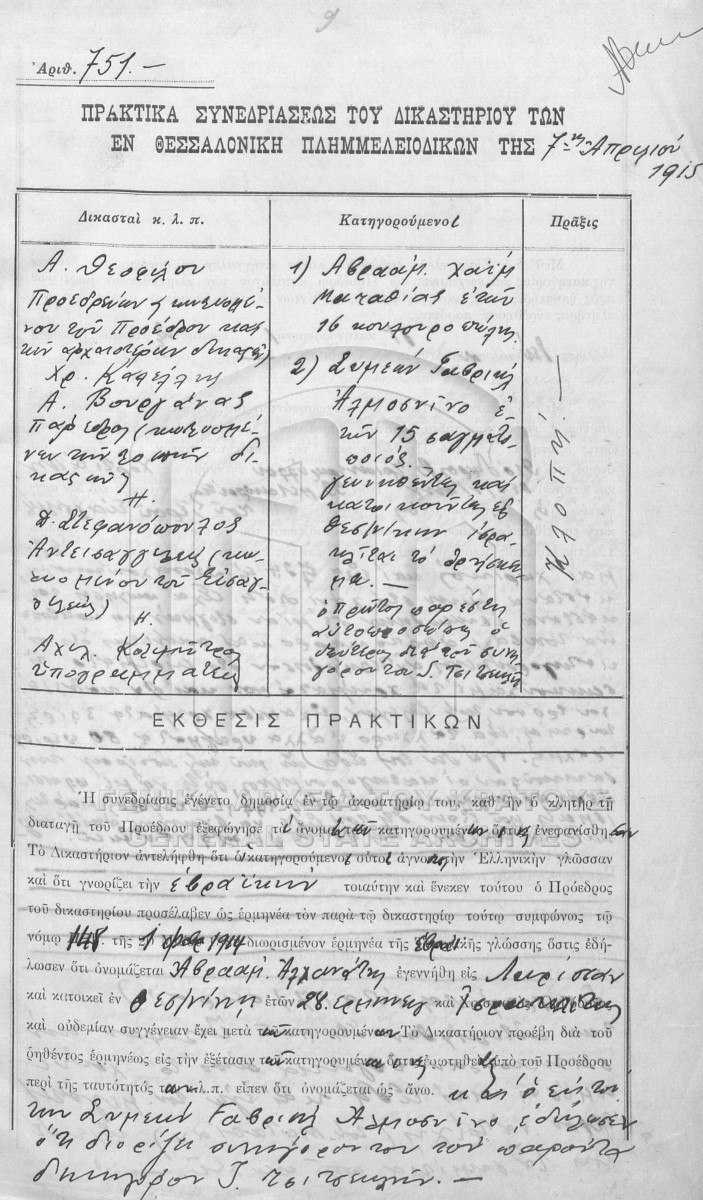 9
Ἀριθ. 751.-
ΠΡΑΚΤΙΚΑ ΣΥΝΕΔΡΙΑΣΕΩΣ ΤΟΥ ΔΙΚΑΣΤΗΡΙΟΥ ΤΩΝ
ΕΝ ΘΕΣΣΑΛΟΝΙΚΗ ΠΛΗΜΜΕΛΕΙΟΔΙΚΩΝ ΤΗΣ 7ης Ἀπριλίου
1915
Δικασταὶ κ. λ. π.
Α. Θεοφίλου
Προεδρεύων
τοῦ Προέδρου καὶ
τῶν ἀρχαιοτέρων
Χρ.
Α. Βουργάνας
Πάρεδρος
των τακτικῶν δι-
Π. Στεφανόπουλος
Ἀντεισαγγελεὺς (κω-
λυομένου τοῦ Εἰσαγ-
γελέως)
Αχιλ.
ὑπογραμματεὺς
Κατηγορούμενοι
1) Αβραάμ Χαΐμ
Ματαθίας ἐτῶν
16 κουλουροπώλης
2) Συμεών Γαβριὴλ
Ἀλμοσνίνο ἐ-
τῶν 15 σαγματο-
ποιός.
γεννηθέντες καὶ
κατοικοῦντες ἐν
Θεσ/ν/κη ἰσρα-
ηλῖται τὸ θρήσκευ-
μα. —
ὁ πρῶτος παρέστη
αὐτοπροσώπως ὁ
δεύτερος διὰ τοῦ συνη-
γόρου του
Πρᾶξις
Κλοπή. —
ΕΚΘΕΣΙΣ ΠΡΑΚΤΙΚΩΝ
Ἡ συνεδρίασις ἐγένετο δημοσίᾳ ἐν τῷ ἀκροατηρίῳ του, καθ' ἣν ὁ κλητὴρ τῇ
διαταγῇ τοῦ Προέδρου ἐξεφώνησε τὸ ὄνομα τῶν κατηγορουμένων ὅστις ἐνεφανίσθησαν
ΓΕΝΙΚΑ ΑΡΧΕΙΑ ΤΟΥ ΚΡΑΤΟΥΣ
GENERAL STATE ARCHIVES
Τὸ Δικαστήριον ἀντελήφθη ὅτι οἱ κατηγορούμενοι οὗτοι ἀγνοοῦν τὴν Ἑλληνικὴν γλῶσσαν
καὶ ὅτι γνωρίζει τὴν ἑβραϊκὴν τοιαύτην καὶ ἕνεκεν τούτου ὁ Πρόεδρος
τοῦ δικαστηρίου προσέλαβεν ὡς ἑρμηνέα τὸν παρὰ τῷ δικαστηρίῳ τούτῳ συμφώνως τῷ
νόμῳ 148 τῆς 1914 διωρισμένον ἑρμηνέα τῆς ἑβραϊκῆς γλώσσης ὅστις ἐδή-
λωσεν ὅτι ὀνομάζεται Ἀβραάμ ἐγεννήθη εἰς Λαρίσσαν
καὶ κατοικεῖ ἐν Θεσ/νίκῃ ἐτῶν 28 ἑρμηνεὺς καὶ Ἰσραηλίτης
καὶ οὐδεμίαν συγγένειαν ἔχει μετὰ τῶν κατηγορουμένων Τὸ Δικαστήριον προέβη διὰ τοῦ
ῥηθέντος ἑρμηνέως εἰς τὴν ἐξέτασιν τῶν κατηγορουμένων ὑπὸ τοῦ Προέδρου
περὶ τῆς ταυτότητός των κ.λ.π. εἶπεν ὅτι ὀνομάζεται ὡς ἄνω.
Συμεὼν Γαβριὴλ Ἀλμοσνίνο ἐδήλωσεν
ὅτι διορίζει συνήγορόν του τὸν παρόντα
δικηγόρον